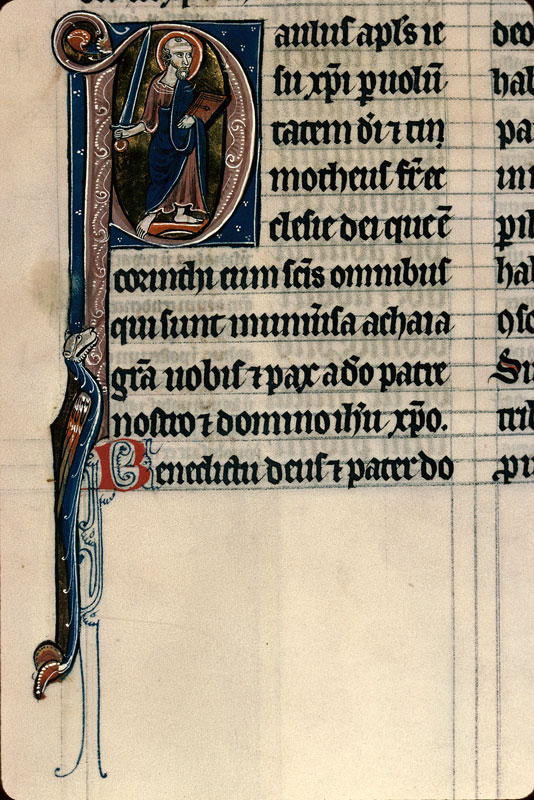 Paulus apl̃s ie
su xp̃i p uolũ
tatem dĩ ⁊ tiɱ
motheus fr̃ ec
clesie dei que ẽ
corinthi cum sc̃is omnibus
qui sunt in uniũsa achaia
gr̃a uobis ⁊ pax a dõ patre
nostro ⁊ domino ih̃u xp̃o.
Benedictu deus ⁊ pater do
deo
hab
pa
hab